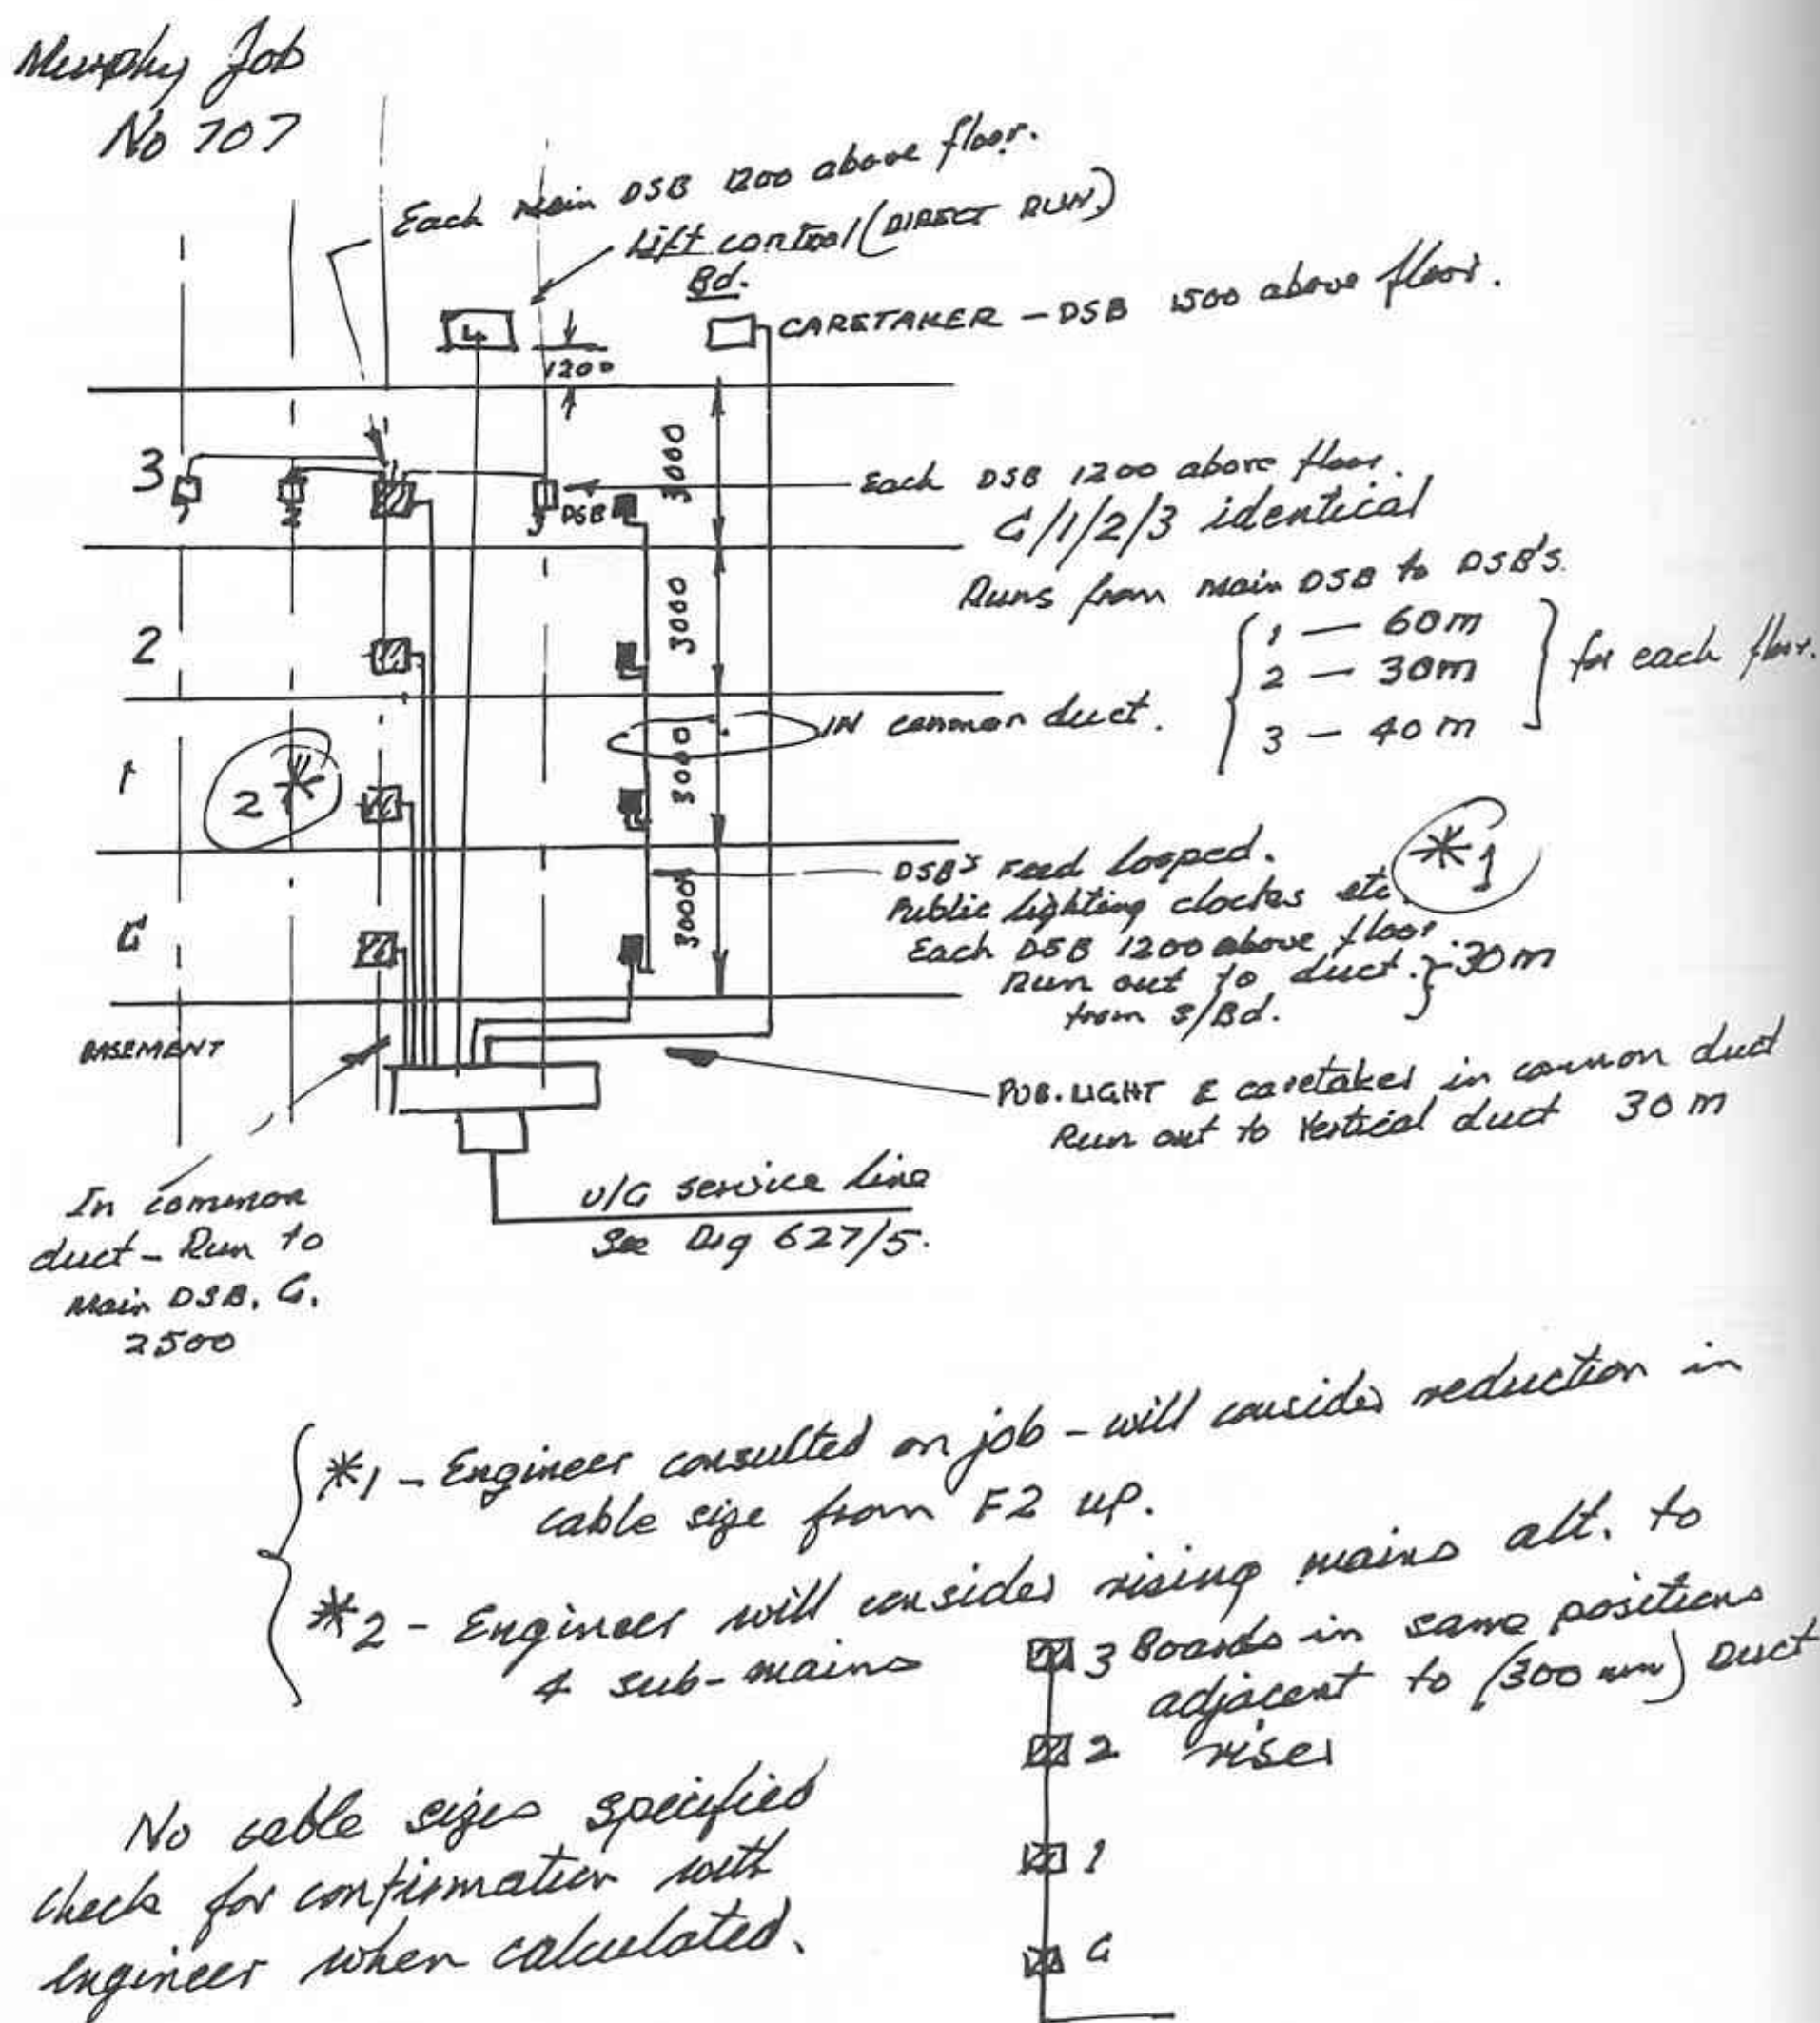 Murphy Job
No 707
Each Main DSB 1200 above floor.
Lift control (DIRECT RUN)
Bd.
CARETAKER – DSB 1500 above floor.
L
1200
3
1
2
3
DSB
3000
Each DSB 1200 above floor.
G/1/2/3 identical
Runs from Main DSB to DSB's.
1 — 60m
2 — 30m
3 — 40m
for each floor.
2
3000
IN common duct.
1
2 *
3000
*1
DSB's Feed looped.
Public lighting clocks etc.
Each DSB 1200 above floor
Run out to duct.
from S/Bd.
30m
G
3000
BASEMENT
PUB. LIGHT & caretaker in common duct
Run out to Vertical duct 30m
In common
duct – Run to
Main DSB, G.
2500
U/G service line
See Drg 627/5.
*1 – Engineer consulted on job – will consider reduction in
cable size from F2 up.
*2 – Engineer will consider rising mains alt. to
4 sub-mains
3 Boards in same positions
adjacent to (300 mm) Duct
2 riser
1
G
No cable sizes specified
check for confirmation with
engineer when calculated.